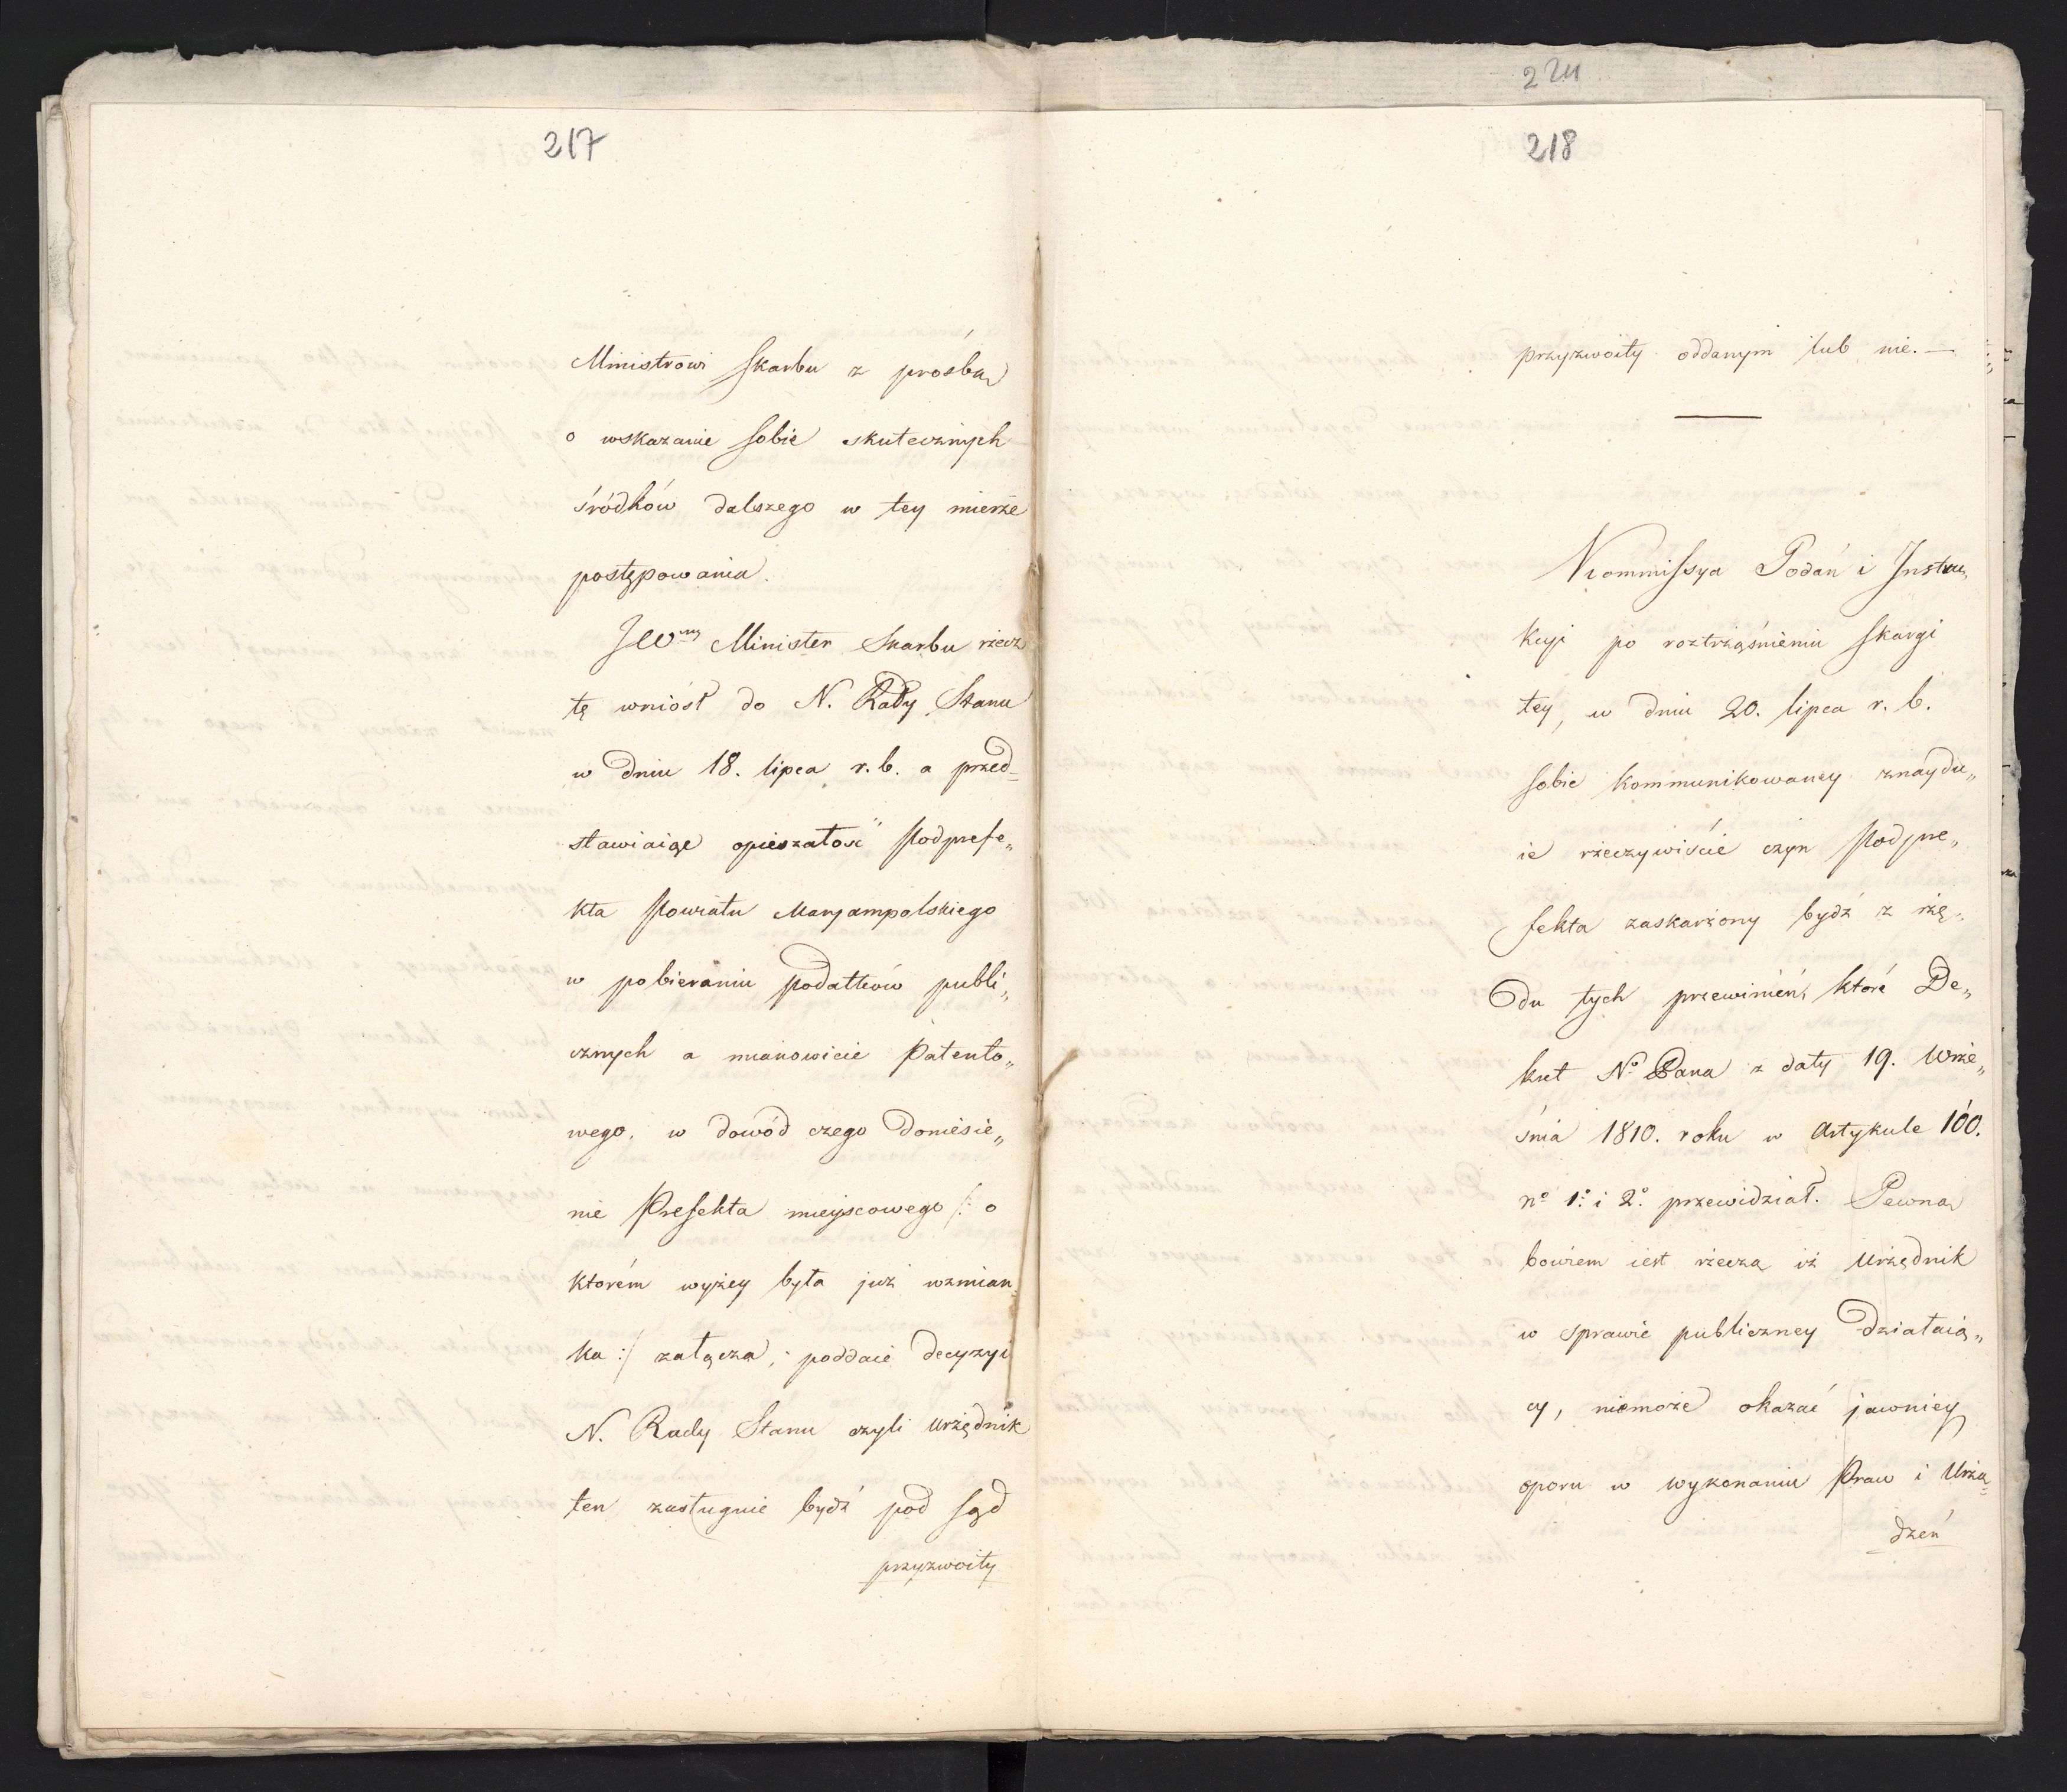 217
Ministrowi Skarbu z prośbą
o wskazanie sobie skutecznych
śródków dalszego w tey mierze
postępowania.
JW Minister Skarbu rzecz
tę wniósł do N. Rady Stanu
w dniu 18. lipca r. b. a przed=
stawiaiąc opieszałość Podprefe„
kta Powiatu Maryampolskiego
w pobieraniu Podatków publi„
cznych a mianowicie Patento„
wego, w dowód czego doniesie„
nie Prefekta mieyscowego /: o
którém wyżey była już wzmian
ka :/ załącza, poddaie decyzyi
N. Rady Stanu czyli Urzędnik
ten zasługuie bydź pod sąd
przyzwoity
224
218
przyzwoity oddanym lub nie. —
Kommissya Podań i Instru„
kcyi po roztrząśnieniu skargi
tey, w dniu 20. lipca r. b.
sobie kommunikowaney znaydu„
ie rzeczywiście czyn Podpre„
fekta zaskarżony bydź z rzę„
du tych przewinień, które De„
kret No Pana z daty 19. Wrze„
śnia 1810. roku w Artykule 100.
no 1o i 2o przewidział. Pewną
bowiem iest rzeczą iż Urzędnik
w sprawie publiczney działaią„
cy, niemoże okazać jawniey
oporu w wykonaniu Praw i Urzą=
dzeń